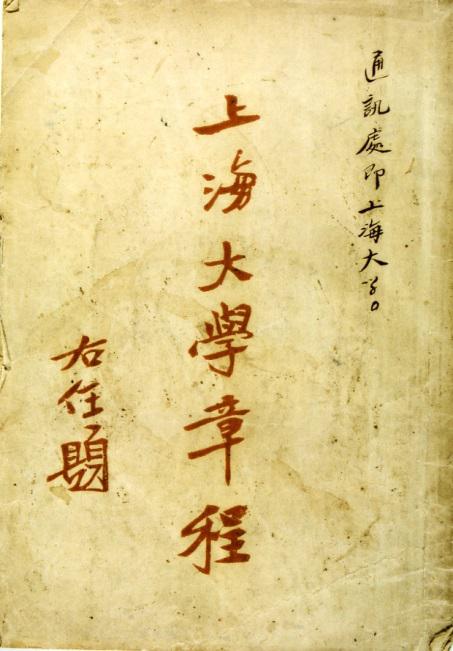 通訊處即上海大学。
上海大學章程
右任題